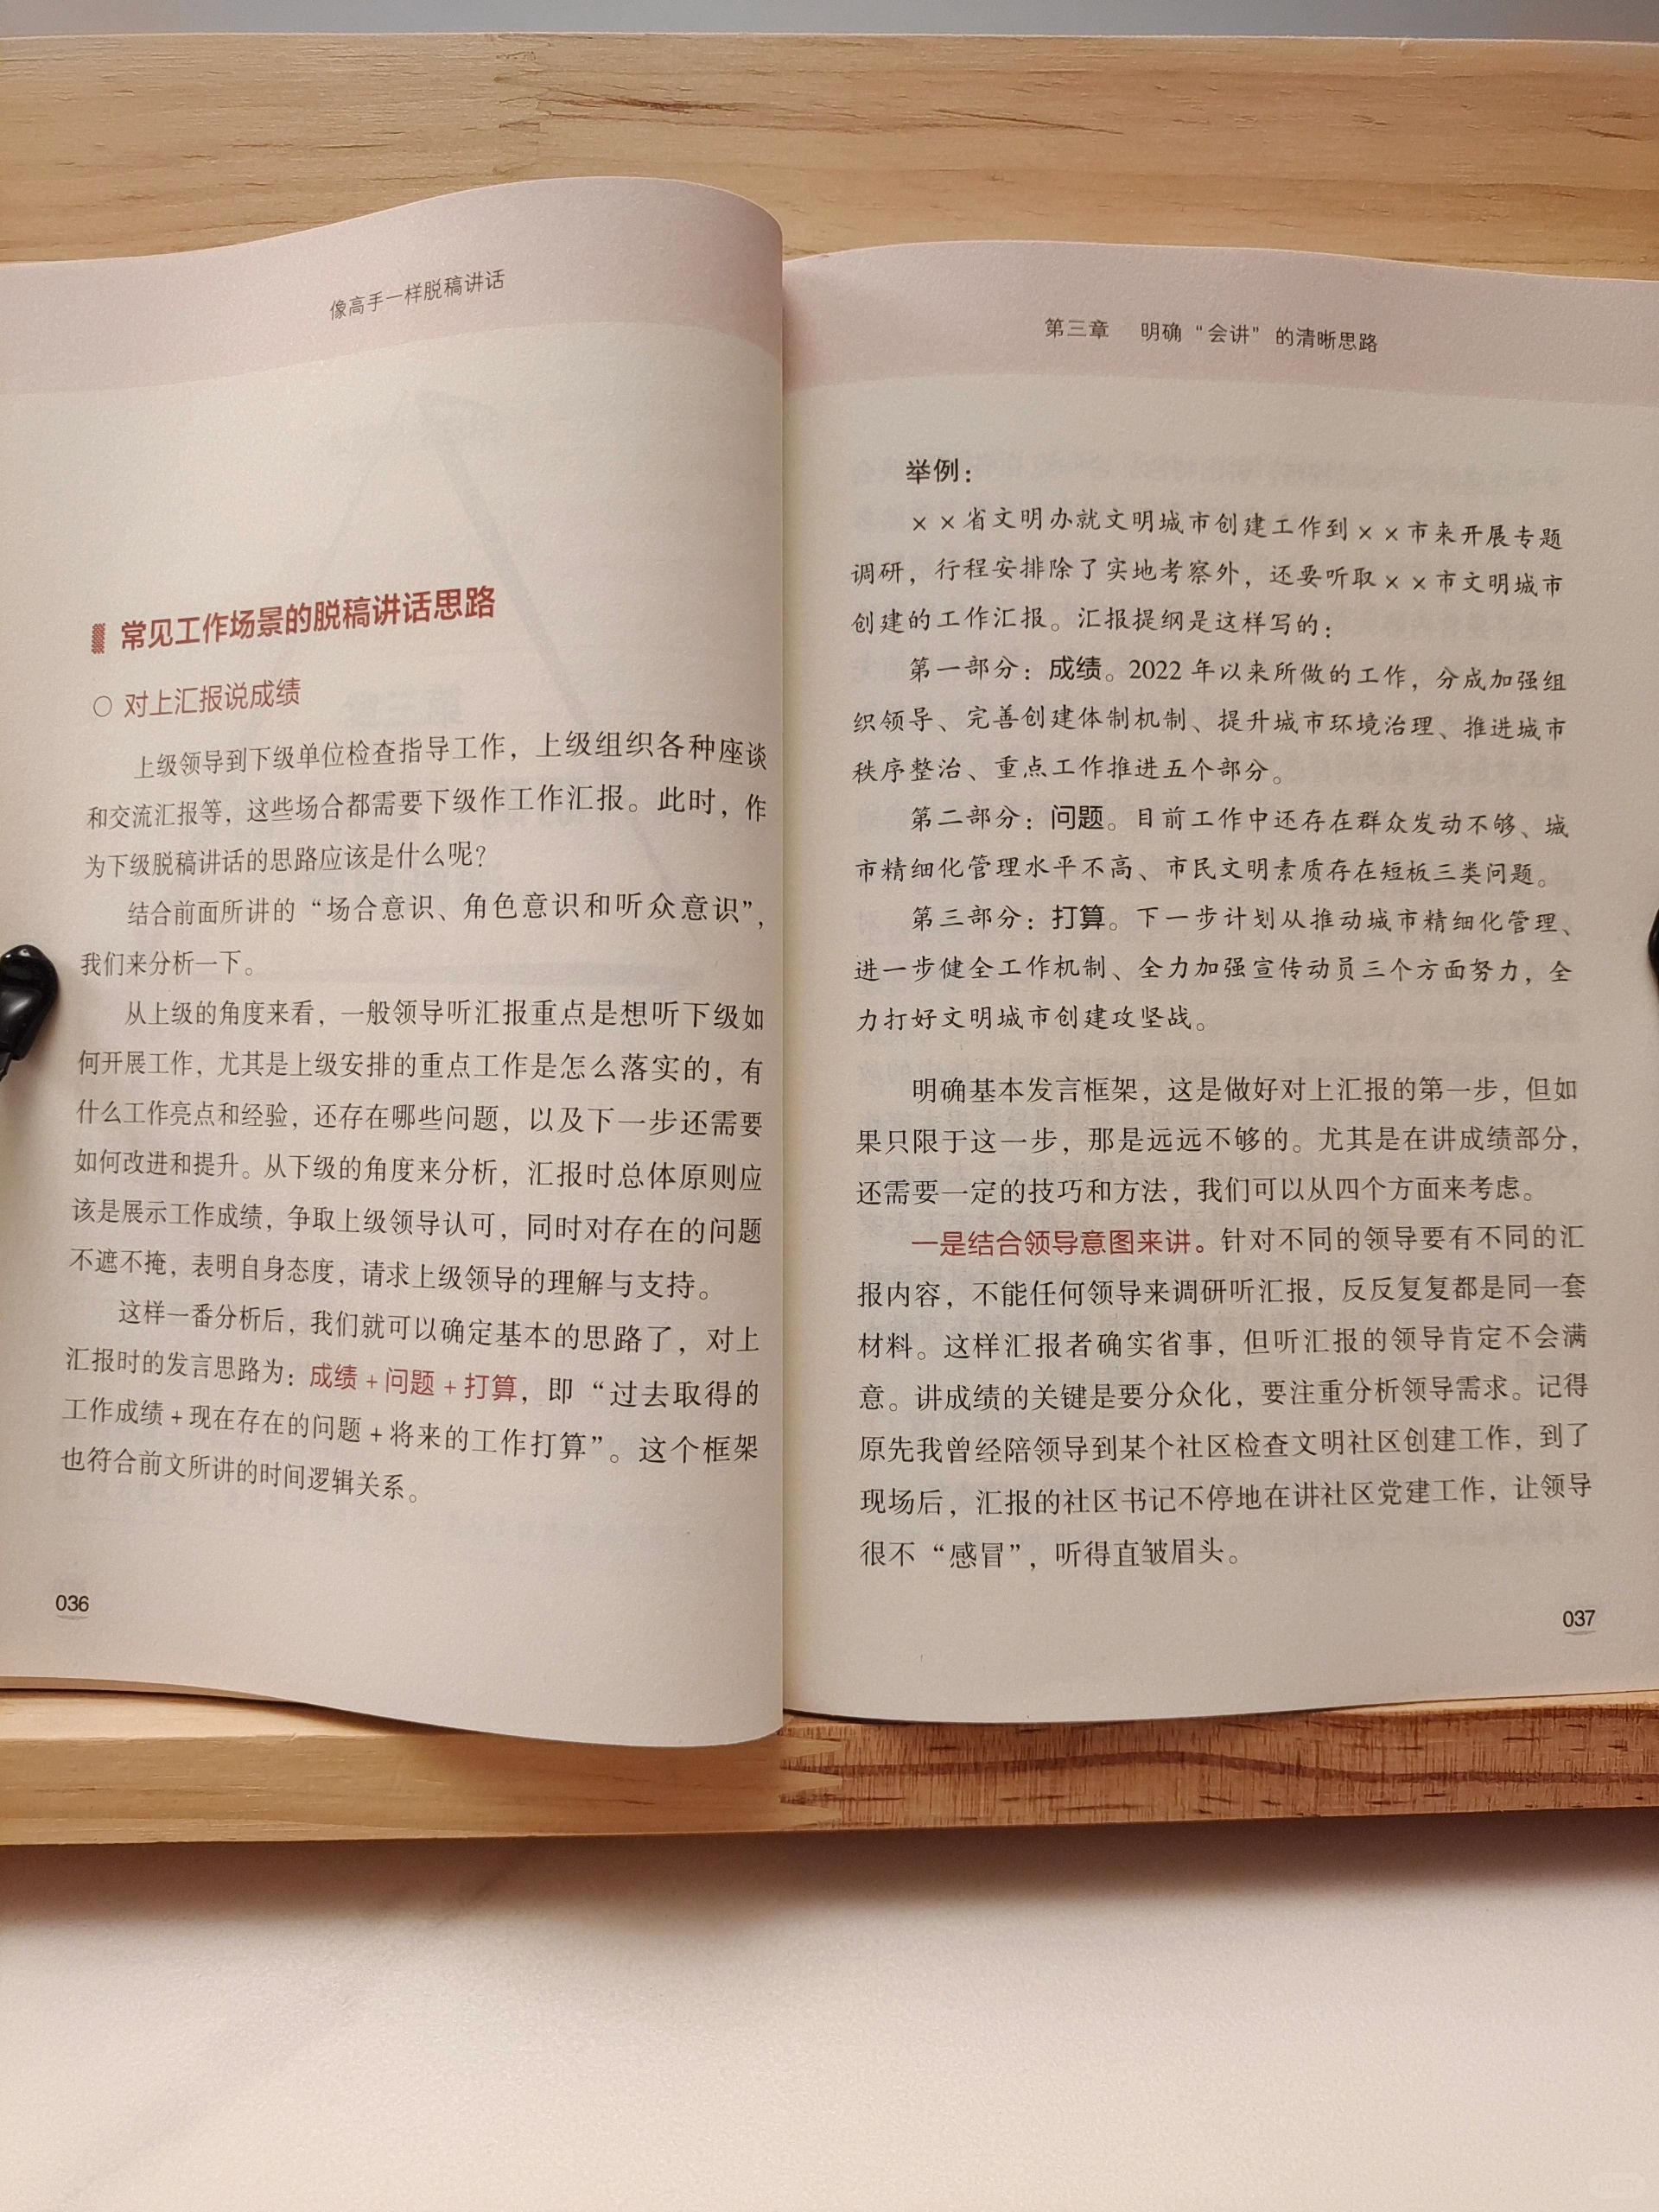 像高手一样脱稿讲话
常见工作场景的脱稿讲话思路
○ 对上汇报说成绩
上级领导到下级单位检查指导工作，上级组织各种座谈
和交流汇报等，这些场合都需要下级作工作汇报。此时，作
为下级脱稿讲话的思路应该是什么呢？
结合前面所讲的“场合意识、角色意识和听众意识”，
我们来分析一下。
从上级的角度来看，一般领导听汇报重点是想听下级如
何开展工作，尤其是上级安排的重点工作是怎么落实的，有
什么工作亮点和经验，还存在哪些问题，以及下一步还需要
如何改进和提升。从下级的角度来分析，汇报时总体原则应
该是展示工作成绩，争取上级领导认可，同时对存在的问题
不遮不掩，表明自身态度，请求上级领导的理解与支持。
这样一番分析后，我们就可以确定基本的思路了，对上
汇报时的发言思路为：成绩+问题+打算，即“过去取得的
工作成绩+现在存在的问题+将来的工作打算”。这个框架
也符合前文所讲的时间逻辑关系。
036
第三章 明确“会讲”的清晰思路
举例：
××省文明办就文明城市创建工作到××市来开展专题
调研，行程安排除了实地考察外，还要听取××市文明城市
创建的工作汇报。汇报提纲是这样写的：
第一部分：成绩。2022年以来所做的工作，分成加强组
织领导、完善创建体制机制、提升城市环境治理、推进城市
秩序整治、重点工作推进五个部分。
第二部分：问题。目前工作中还存在群众发动不够、城
市精细化管理水平不高、市民文明素质存在短板三类问题。
第三部分：打算。下一步计划从推动城市精细化管理、
进一步健全工作机制、全力加强宣传动员三个方面努力，全
力打好文明城市创建攻坚战。
明确基本发言框架，这是做好对上汇报的第一步，但如
果只限于这一步，那是远远不够的。尤其是在讲成绩部分，
还需要一定的技巧和方法，我们可以从四个方面来考虑。
一是结合领导意图来讲。针对不同的领导要有不同的汇
报内容，不能任何领导来调研听汇报，反反复复都是同一套
材料。这样汇报者确实省事，但听汇报的领导肯定不会满
意。讲成绩的关键是要分众化，要注重分析领导需求。记得
原先我曾经陪领导到某个社区检查文明社区创建工作，到了
现场后，汇报的社区书记不停地在讲社区党建工作，让领导
很不“感冒”，听得直皱眉头。
037